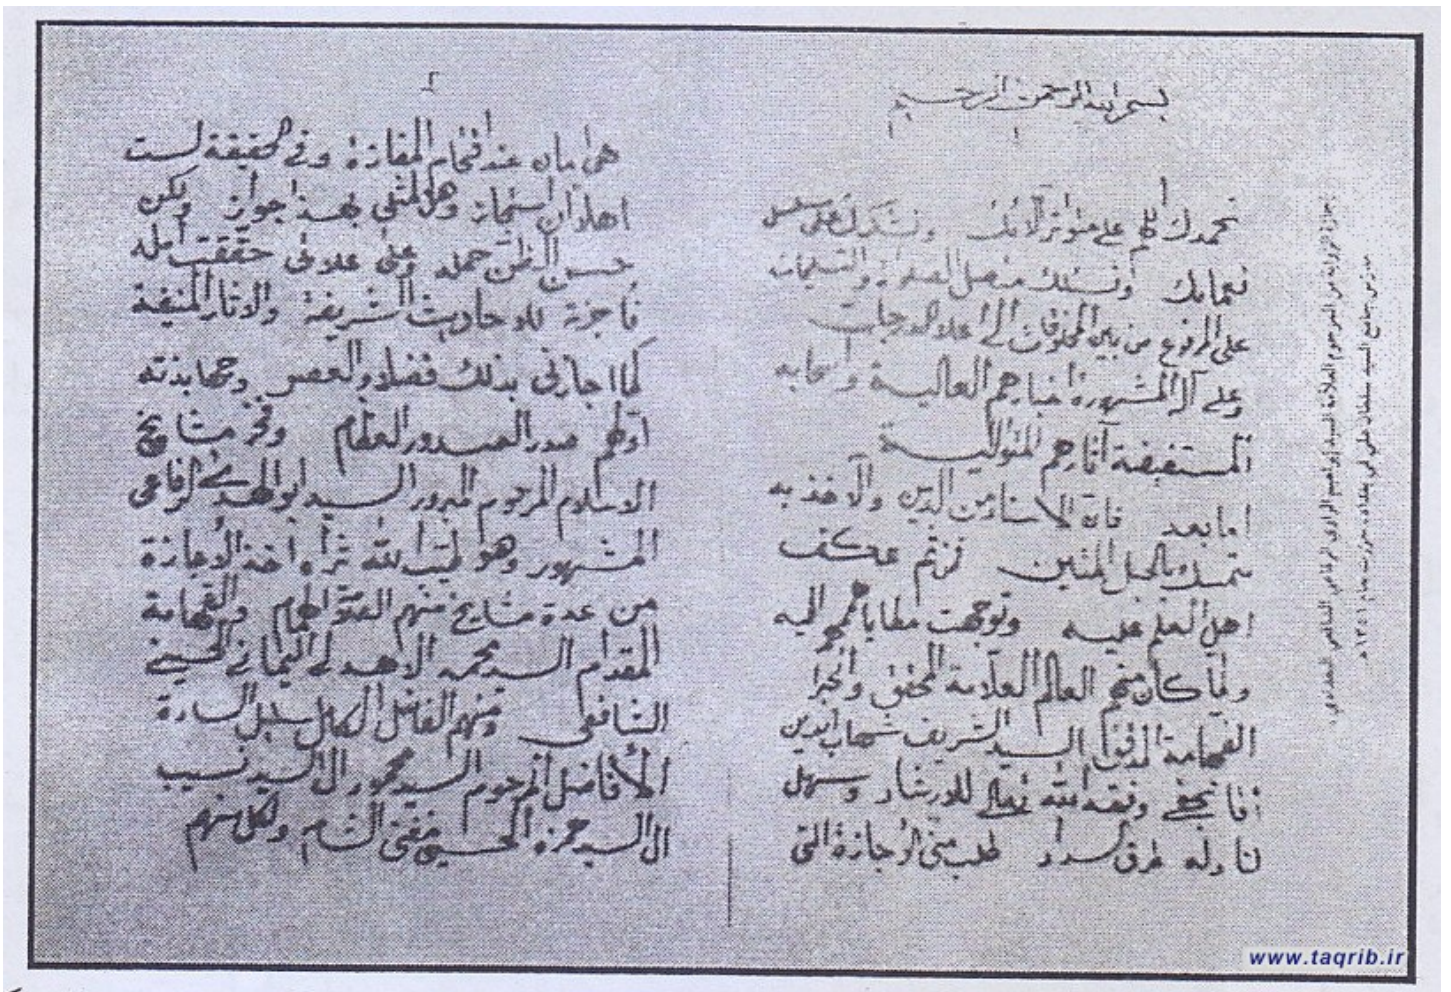 بسم الله الرحمن الرحيم
١
نحمدك اللهم على متواتر آلائك ونشكرك على مسلسل
نعمائك ونسئلك متصل الصلوات والتسليمات
على المرفوع من بين المخلوقات الى اعلا الدرجات
وعلى آله المشهورة اخبارهم العالية واصحابه
المستفيضة آثارهم المتوالية
اما بعد فان الاسناد من الدين والآخذ به
متمسك بالحبل المتين فلذا عكف
اهل العلم عليه وتوجهت مطايا هممهم اليه
ولما كان منهم العالم العلامة المحقق والحبر
الفهامة المدقق السيد الشريف شهاب الدين
آقا نجفي وفقه الله تعالى للارشاد وسهل
لنا وله طرق السداد طلب مني الاجازة التي
٢
هي امان عند اقتحام المفازة وفي الحقيقة لست
اهلا ان استجاز وهل لمثلي بهذا جواز ولكن
حسن الظن حمله وعلى علاتي حققت امله
فاجزته بالاحاديث الشريفة والاثار المنيفة
كما اجازني بذلك فضلاء العصر وجهابذته
اولهم صدر الصدور العظام وفخر مشايخ
الاسلام المرحوم المبرور السيد ابو الهدى الرفاعي
المشهور وهو طيب الله ثراه اخذ الاجازة
من عدة مشايخ منهم الهمام والفهامة
المقدام السيد محمد الاهدلي اليماني الحسيني
الشافعي ومنهم الفاضل الكامل سليل السادة
الأفاضل المرحوم السيد محمود ال السيد نسيب
ال السيد حمزة الحسيني مفتي الشام ولكل منهم
إجازة الرواية من المرحوم العلامة السيد إبراهيم الراوي الرفاعي الشافعي البغدادي،
مدرس جامع السيد سلطان علي في بغداد، حررت بعام ١٣٥١هـ
www.taqrib.ir